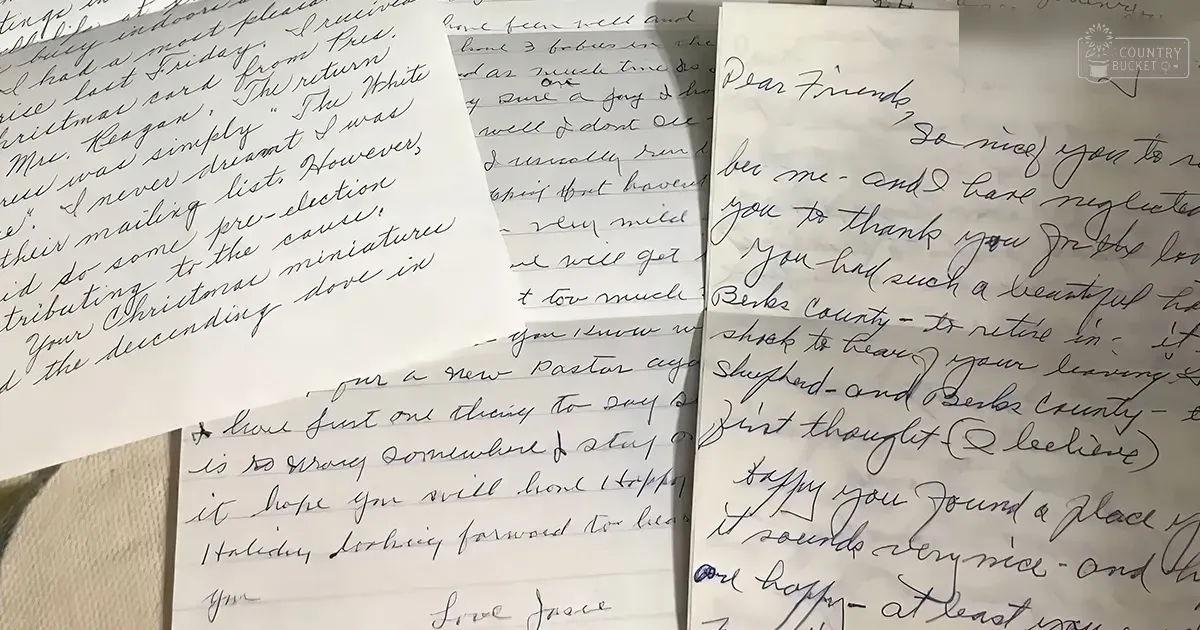 busy indoors
I had a most pleasant
last Friday. I received
Christmas card from Pres.
Mrs. Reagan. The return
was simply "The White
". I never dreamt I was
their mailing list. However,
did do some pre-election
to the cause.
Your Christmas miniatures
the descending dove in
been well and
have 3 babies in the
as much time
one
sure a joy I
well I dont see
I usually
very mild
will get
too much
you know
for a new Pastor
I have just one thing to say
is so wrong somewhere I stay
it hope you will have Happy
Holiday looking forward to
you
Love Josie
Dear Friends,
So nice of you to
me - and I have
you to thank you for the
You had such a beautiful
Berks County - to retire in - it
shock to hear of your leaving
Shepherd - and Berks County -
first thought (I believe)
Happy you found a place
it sounds very nice - and
are happy - at least you
COUNTRY
BUCKET